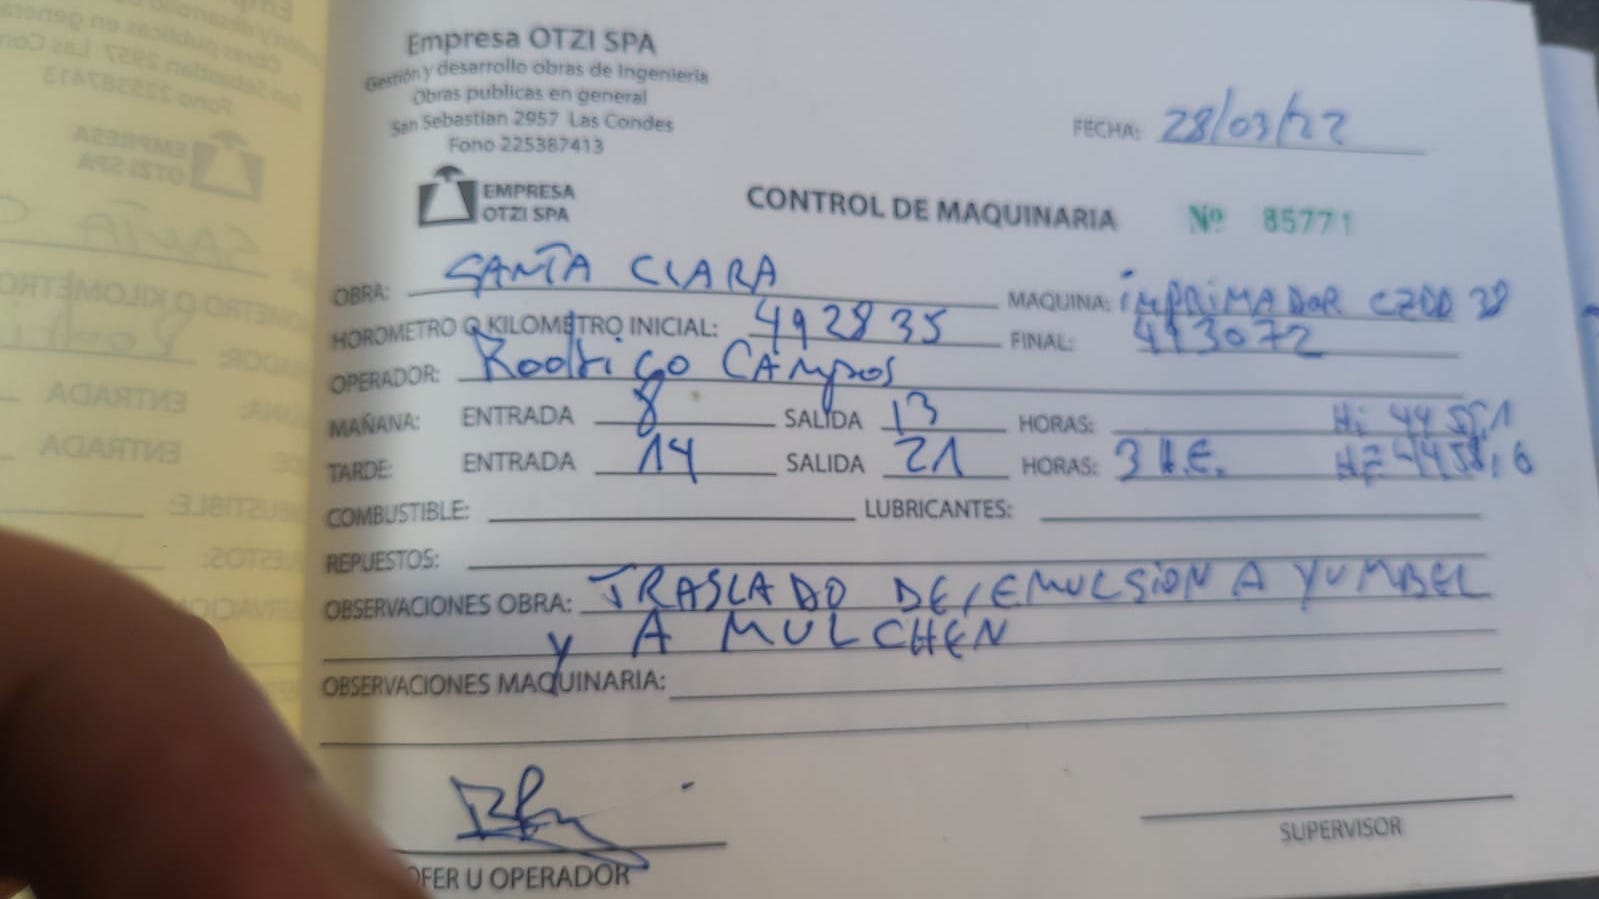 Empresa OTZI SPA
Gestión y desarrollo obras de Ingenieria
Obras publicas en general
San Sebastian 2957 Las Condes
Fono 225387413
FECHA: 28/03/22
EMPRESA
OTZI SPA
CONTROL DE MAQUINARIA Nº 85771
OBRA: SANTA CLARA MAQUINA: iMPRiMADOR CZDD 38
HOROMETRO O KILOMETRO INICIAL: 492835 FINAL: 493072
OPERADOR: Rodrigo CAmpos
MAÑANA: ENTRADA 8 SALIDA 13 HORAS: Hi 4455,1
TARDE: ENTRADA 14 SALIDA 21 HORAS: 3 H.E. HF 4458,6
COMBUSTIBLE: LUBRICANTES:
REPUESTOS:
OBSERVACIONES OBRA: TRASLADO DE EMULSION A YUMBEL
y A MULCHEN
OBSERVACIONES MAQUINARIA:
OFER U OPERADOR
SUPERVISOR